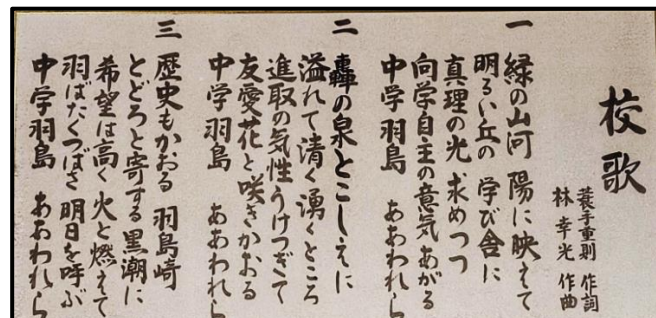 校歌
蓑手重則 作詞
林幸光 作曲
一 緑の山河 陽に映えて
明るい丘の 学び舎に
真理の光 求めつつ
向学自主の意気あがる
中学羽島 ああわれら
二 轟の泉とこしえに
溢れて清く湧くところ
進取の気性うけつぎて
友愛花と咲きかおる
中学羽島 ああわれら
三 歴史もかおる 羽島崎
とどろと寄する 黒潮に
希望は高く 火と燃えて
羽ばたくつばさ 明日を呼ぶ
中学羽島 ああわれら